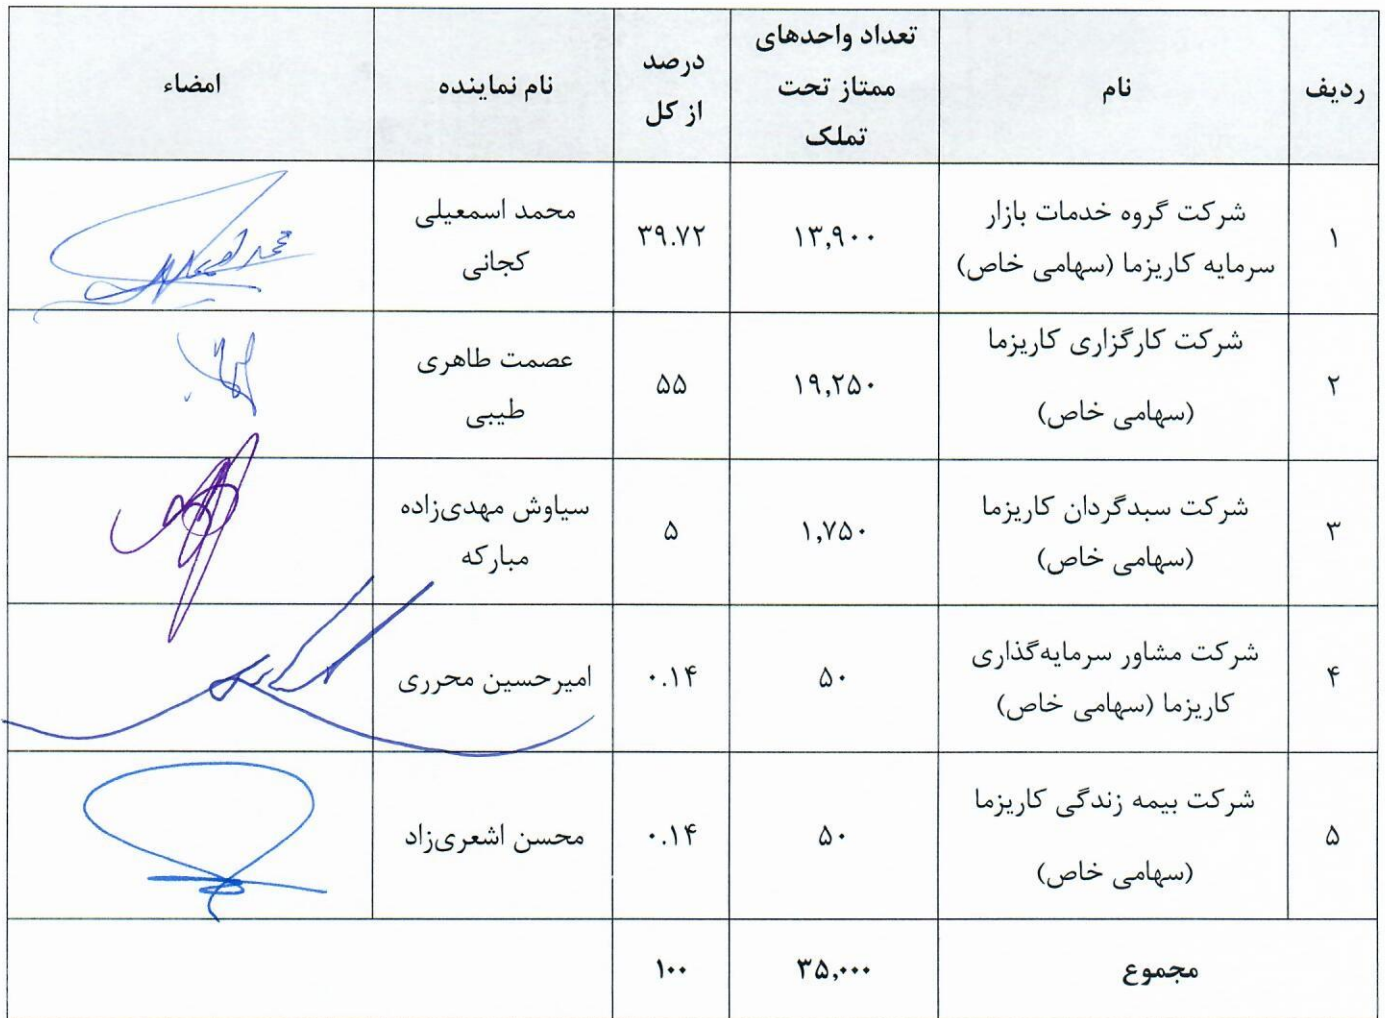 ردیف
نام
تعداد واحدهای
ممتاز تحت
تملک
درصد
از کل
نام نماینده
امضاء
۱
شرکت گروه خدمات بازار
سرمایه کاریزما (سهامی خاص)
۱۳,۹۰۰
۳۹.۷۲
محمد اسمعیلی
کجانی
۲
شرکت کارگزاری کاریزما
(سهامی خاص)
۱۹,۲۵۰
۵۵
عصمت طاهری
طیبی
۳
شرکت سبدگردان کاریزما
(سهامی خاص)
۱,۷۵۰
۵
سیاوش مهدی‌زاده
مبارکه
۴
شرکت مشاور سرمایه‌گذاری
کاریزما (سهامی خاص)
۵۰
۰.۱۴
امیرحسین محرری
۵
شرکت بیمه زندگی کاریزما
(سهامی خاص)
۵۰
۰.۱۴
محسن اشعری‌زاد
مجموع
۳۵,۰۰۰
۱۰۰